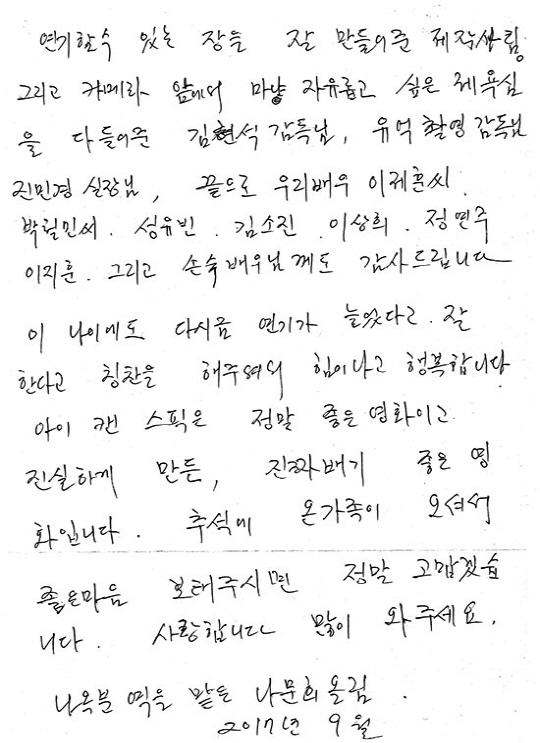 연기할수 있는 장을 잘 만들어준 제작사림
그리고 카메라 앞에서 마냥 자유롭고 싶은 제 욕심
을 다 들어준 김현석 감독님, 유억 촬영 감독님
진민경 실장님, 끝으로 우리배우 이제훈씨.
박철민씨. 성유빈. 김소진. 이상희. 정연주
이지훈. 그리고 손숙 배우님 께도 감사드립니다
이 나이에도 다시금 연기가 늘었다고. 잘
한다고 칭찬을 해주셔서 힘이나고 행복합니다
아이 캔 스픽은 정말 좋은 영화이고
진실하게 만든, 진짜배기 좋은 영
화입니다. 추석에 온가족이 오셔서
좋은마음 보태주시면 정말 고맙겠습
니다. 사랑합니다 많이 와주세요.
나옥분 역을 맡은 나문희 올림.
2017년 9월